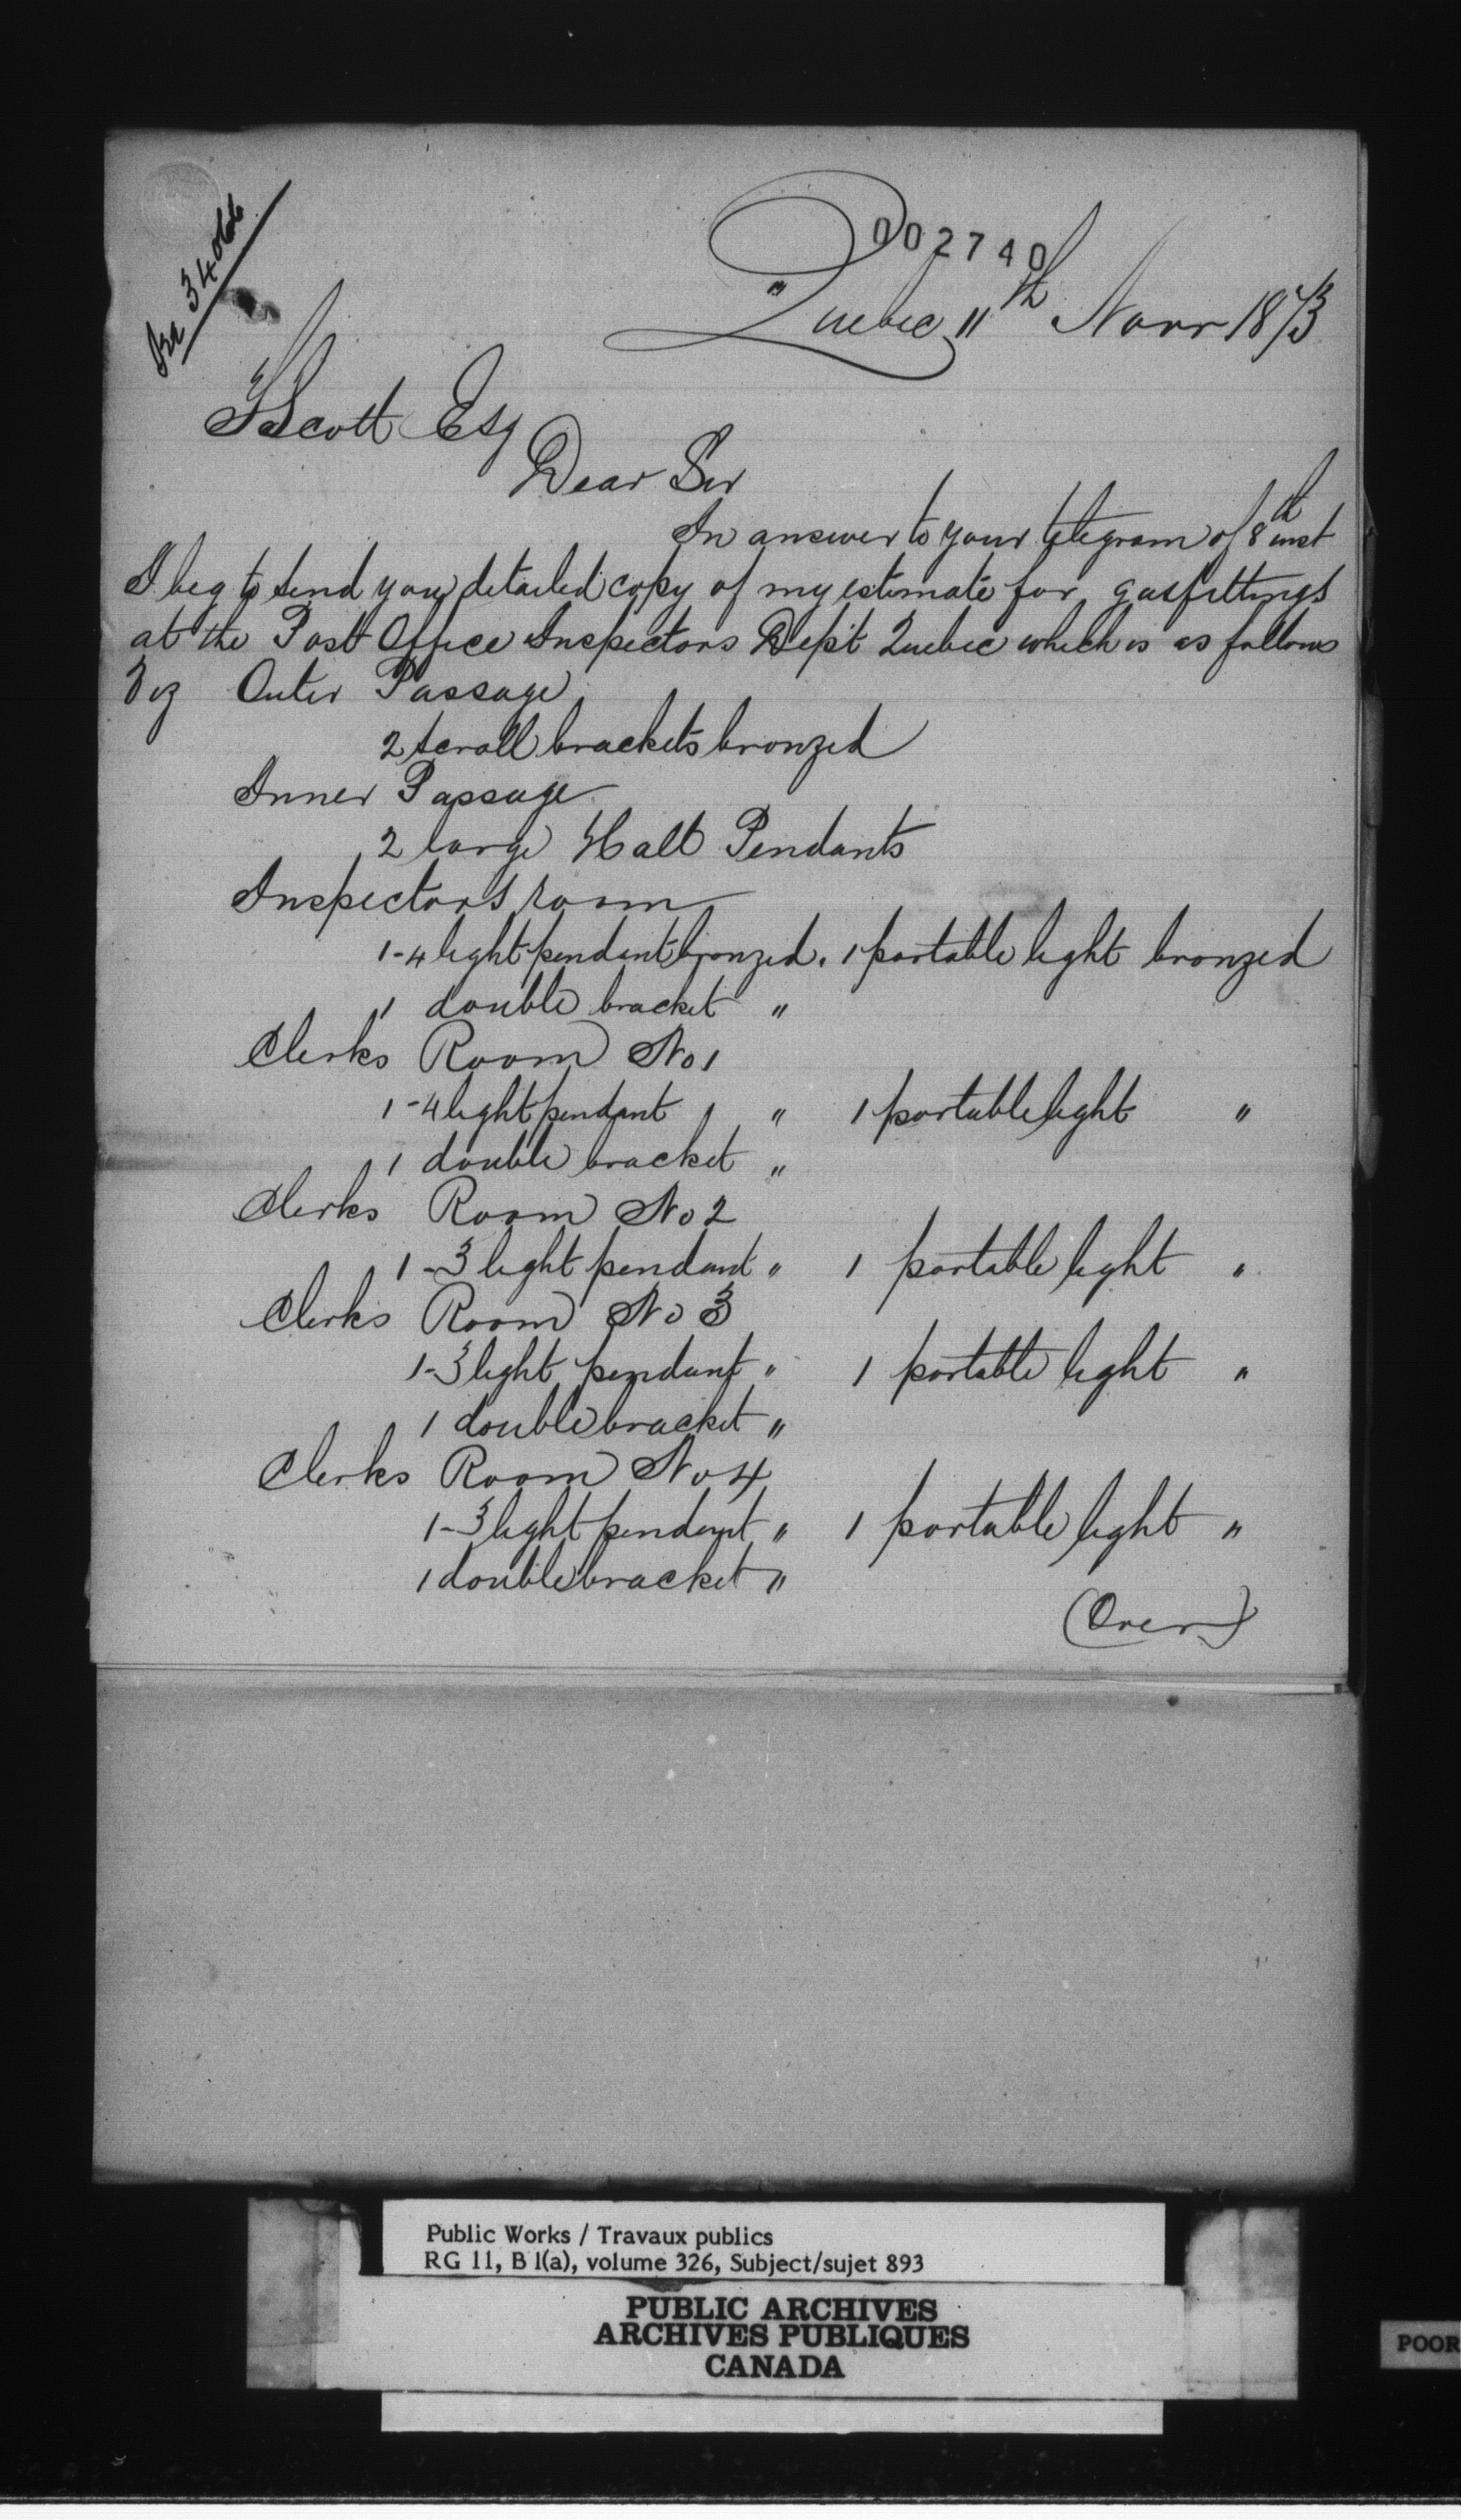 002740
34066
Quebec 11th Novr 1873
Scott Esq
Dear Sir
In answer to your telegram of 8th inst
I beg to send you detailed copy of my estimate for gasfittings
at the Post Office Inspectors Dept Quebec which is as follows
Viz Outer Passage
2 scroll brackets bronzed
Inner Passage
2 large Hall Pendants
Inspectors room
1-4 light pendant bronzed. 1 portable light bronzed
1 double bracket "
Clerks Room No 1
1-4 light pendant " 1 portable light "
1 double bracket "
Clerks Room No 2
1-3 light pendant " 1 portable light "
Clerks Room No 3
1-3 light pendant " 1 portable light "
1 double bracket "
Clerks Room No 4
1-3 light pendant " 1 portable light "
1 double bracket "
(Over)
Public Works / Travaux publics
RG 11, B 1(a), volume 326, Subject/sujet 893
PUBLIC ARCHIVES
ARCHIVES PUBLIQUES
CANADA
POOR